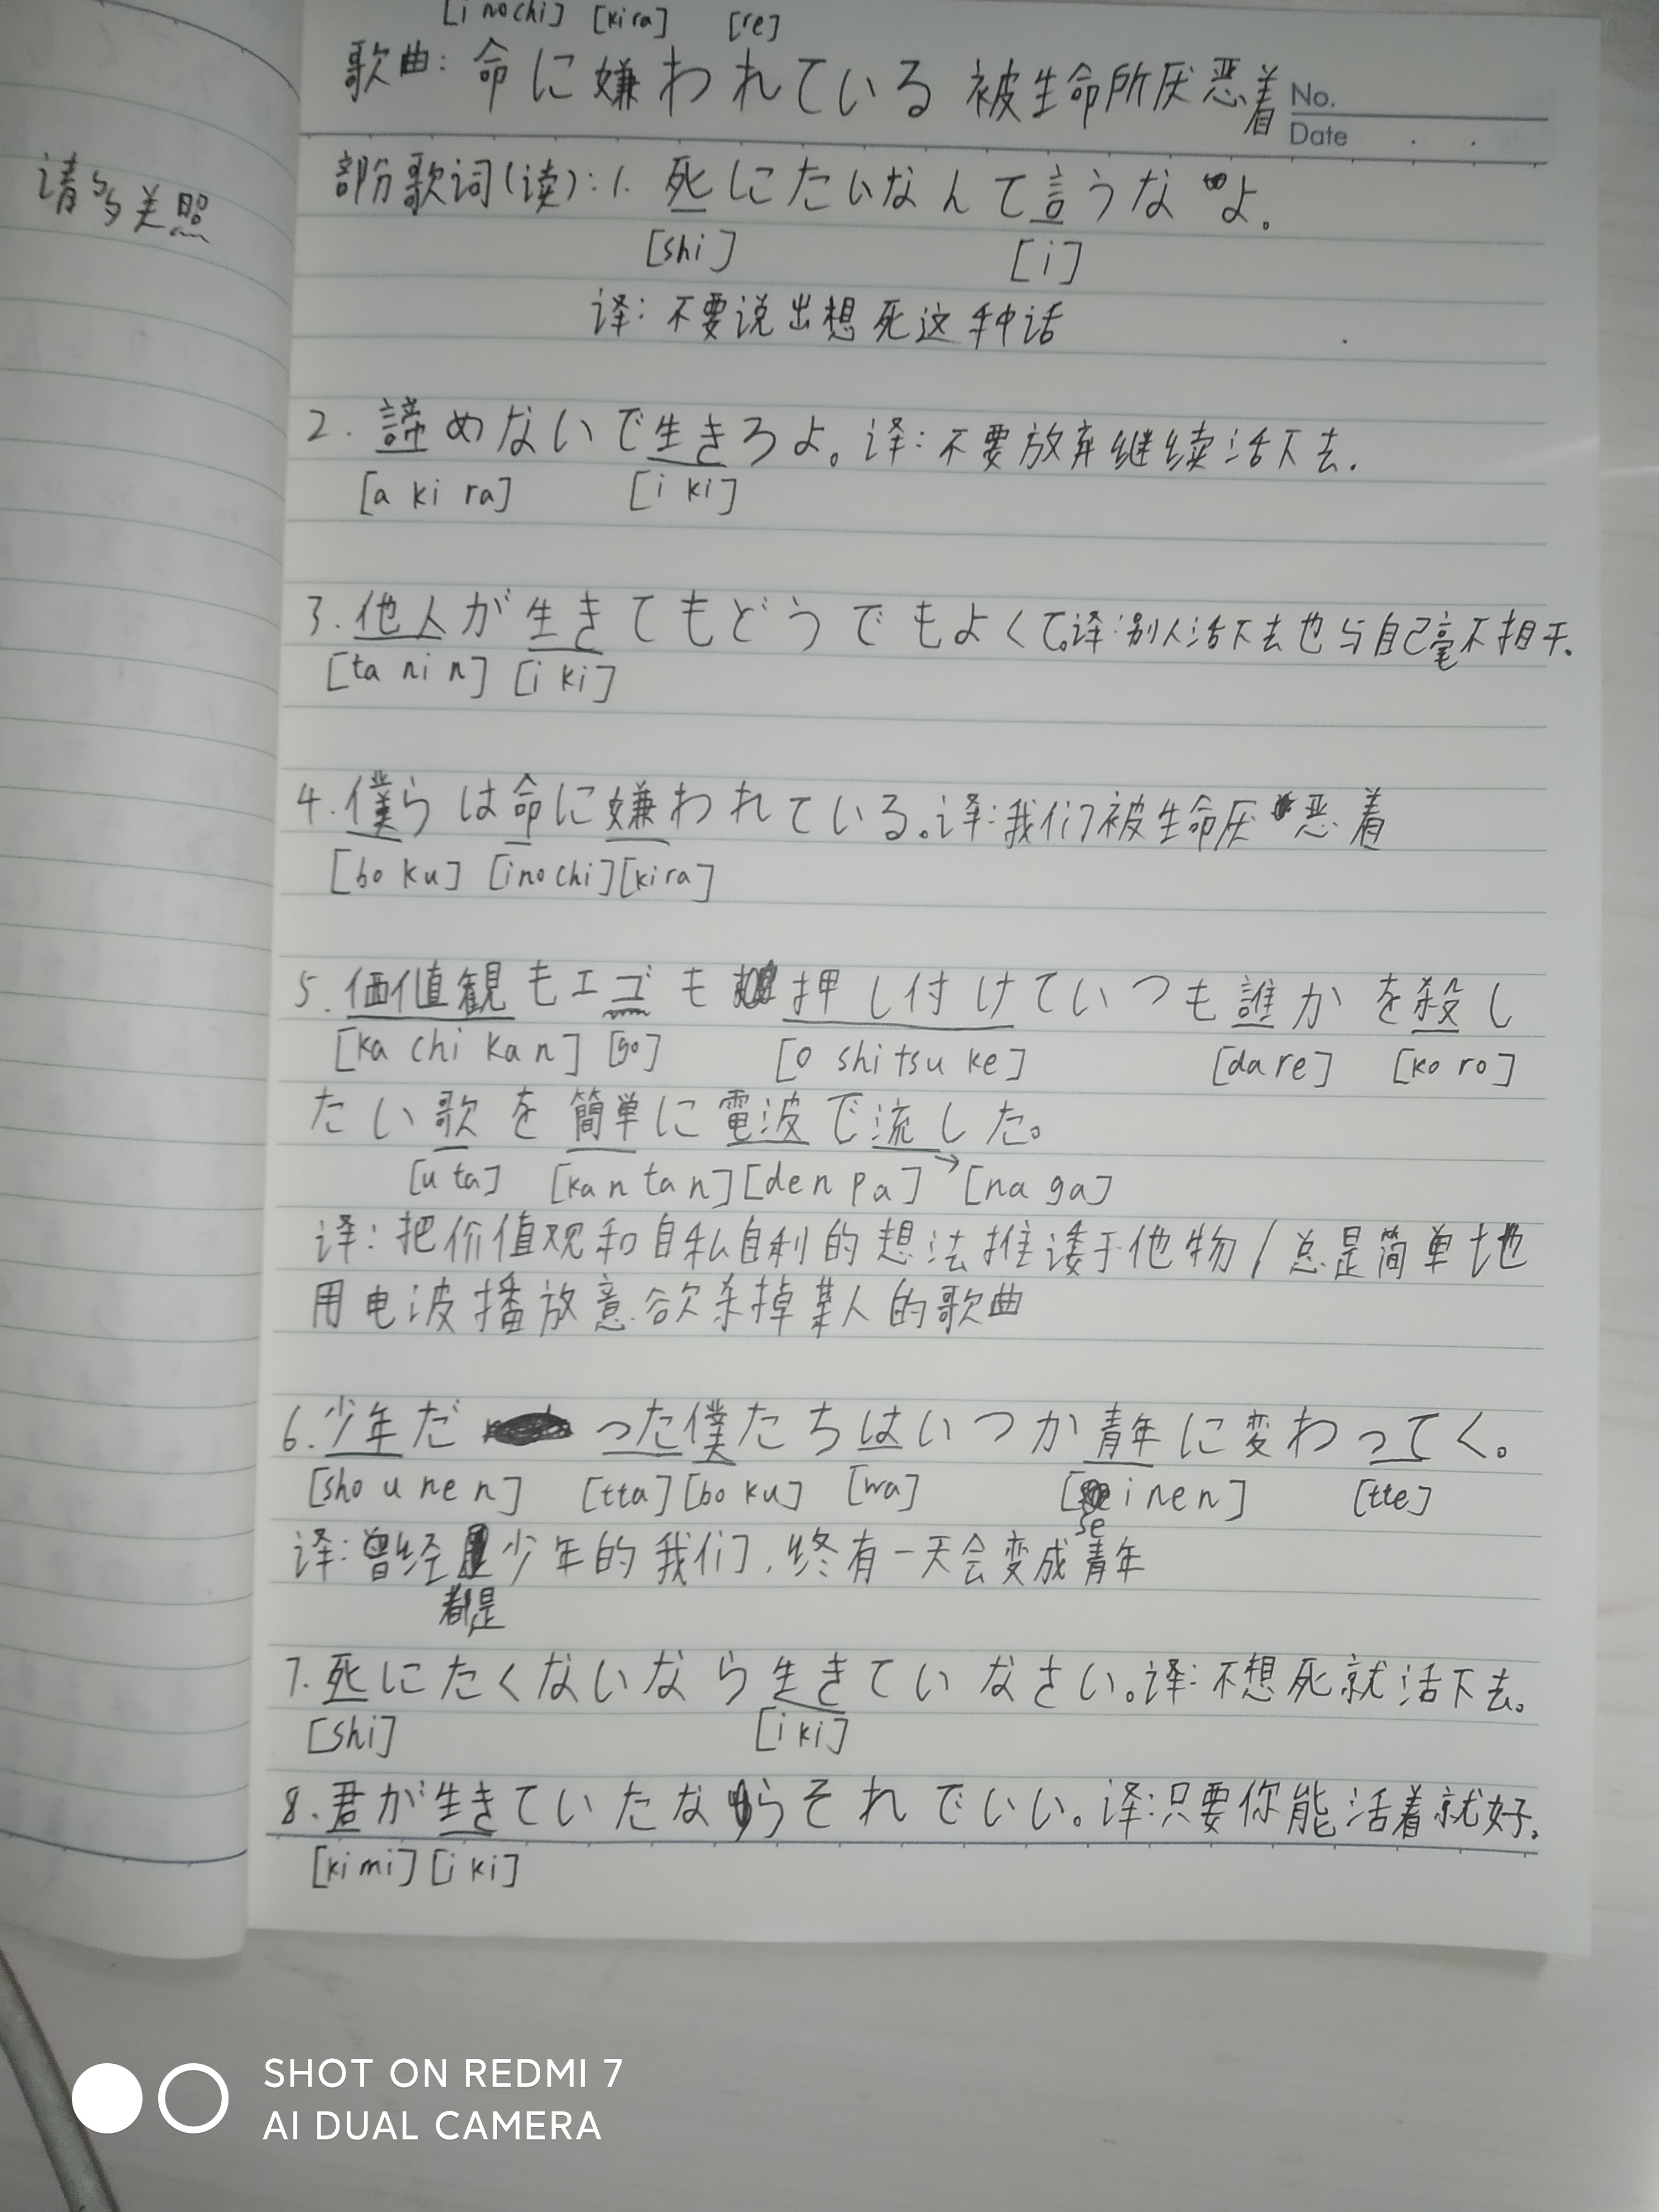 [i nochi] [kira] [re]
歌曲: 命に嫌われている 被生命所厌恶着
No.
Date
请多关照
部份歌词(读): 1. 死にたいなんて言うなよ。
[shi] [i]
译: 不要说出想死这种话
2. 諦めないで生きろよ。译: 不要放弃继续活下去.
[a ki ra] [i ki]
3. 他人が生きてもどうでもよくて。译: 别人活下去也与自己毫不相干.
[ta ni n] [i ki]
4. 僕らは命に嫌われている。译: 我们被生命厌恶着
[bo ku] [inochi] [kira]
5. 価値観もエゴも押し付けていつも誰かを殺し
[ka chi kan] [go] [o shi tsu ke] [da re] [ko ro]
たい歌を簡単に電波で流した。
[u ta] [kan tan] [den pa] → [na ga]
译: 把价值观和自私自利的想法推诿于他物 / 总是简单地
用电波播放意欲杀掉某人的歌曲
6. 少年だった僕たちはいつか青年に変わってく。
[sho u ne n] [tta] [bo ku] [wa] [se i nen] [tte]
译: 曾经都是少年的我们, 终有一天会变成青年
7. 死にたくないなら生きていなさい。译: 不想死就活下去。
[shi] [i ki]
8. 君が生きていたならそれでいい。译: 只要你能活着就好。
[ki mi] [i ki]
SHOT ON REDMI 7
AI DUAL CAMERA